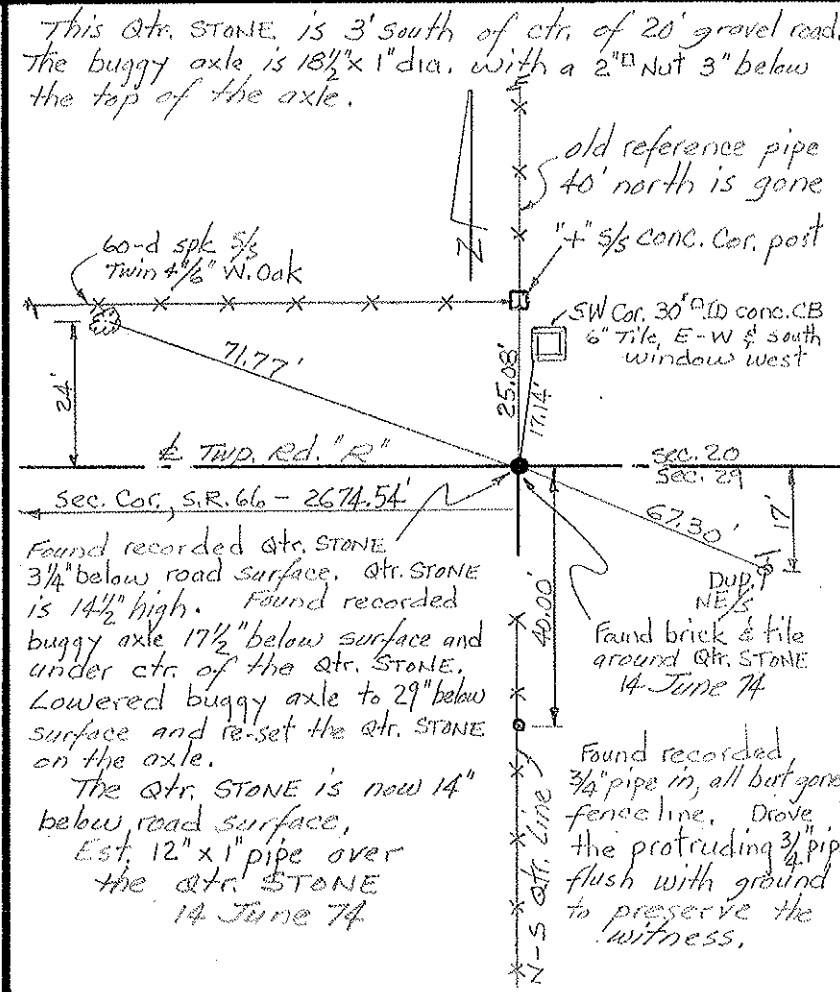 This Qtr. STONE is 3' south of ctr. of 20' gravel road.
The buggy axle is 18½" x 1" dia. with a 2"□ Nut 3" below
the top of the axle.
old reference pipe
40' north is gone
"+" S/s conc. Cor. post
60-d spk S/s
Twin 4"/6" W. Oak
SW Cor. 30"□ ID conc. CB
6" Tile, E-W & south
window west
N
71.77'
24'
25.08'
17.14'
℄ Twp. Rd. "R"
Sec. 20
Sec. 29
Sec. Cor., S.R. 66 - 2674.54'
67.30'
17'
40.00'
Dup.
NE/s
Found recorded Qtr. STONE
3¼" below road surface. Qtr. STONE
is 14½" high. Found recorded
buggy axle 17½" below surface and
under ctr. of the Qtr. STONE.
Lowered buggy axle to 29" below
surface and re-set the Qtr. STONE
on the axle.
The Qtr. STONE is now 14"
below road surface,
Est. 12" x 1" pipe over
the Qtr. STONE
14 June 74
Found brick & tile
around Qtr. STONE
14 June 74
N-S Qtr. Line
Found recorded
¾" pipe in, all but gone
fence line. Drove
the protruding ¾" pip
flush with ground
to preserve the
witness.